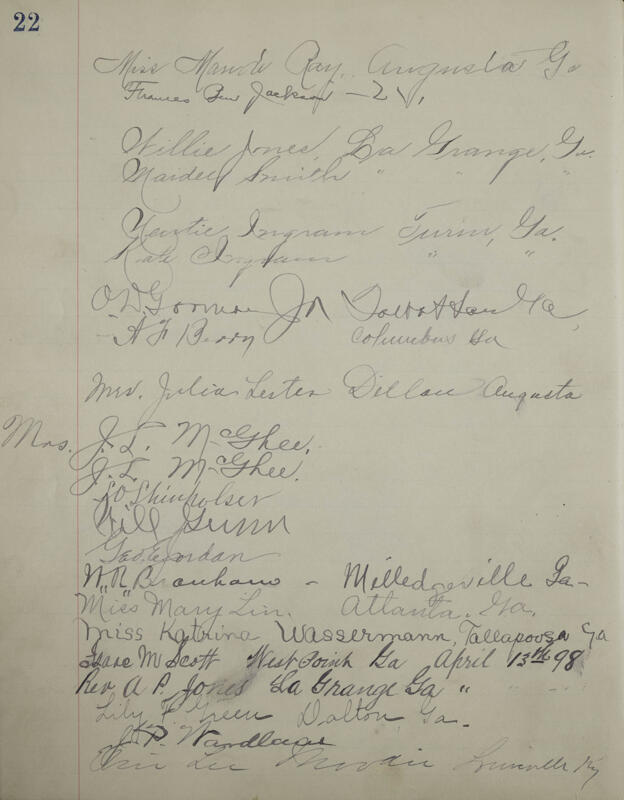 22
Miss Maude Ray, Augusta Ga
Frances Jackson
Willie Jones, La Grange, Ga.
Maidee Smith " " "
Ingram Turin, Ga.
Kate Ingram " "
O. D. Gorman Jr Talbotton Ga,
A F Berry Columbus Ga
Mrs. Julia Lester Dillon Augusta
Mrs. J. T. McGhee.
J. T. McGhee.
Shinholser
Will Gunn
Geo. Jordan
W. R. Branham - Milledgeville Ga-
Miss Mary Lin. Atlanta, Ga.
Miss Katrina Wassermann, Tallapoosa Ga
Isaac M Scott West Point Ga April 13th 98
Rev. A P. Jones La Grange Ga "
Lily F. Green Dalton Ga.
J. P. Wardlaw
Lee Louisville Ky